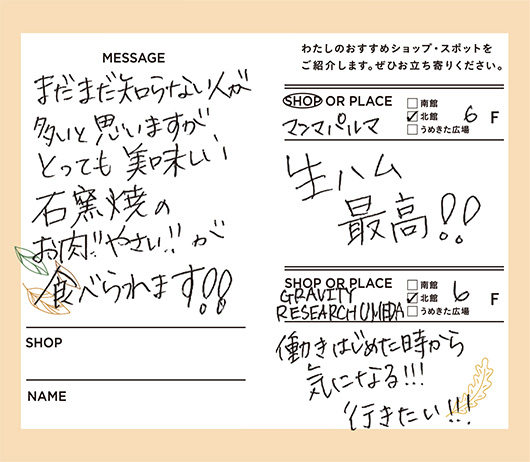 MESSAGE
まだまだ知らない人が
多いと思いますが
とっても美味しい
石窯焼の
お肉!!やさい!!が
食べられます!!
SHOP
NAME
わたしのおすすめショップ・スポットを
ご紹介します。ぜひお立ち寄りください。
SHOP OR PLACE
マンマパルマ
南館
北館
うめきた広場
6 F
生ハム
最高!!
SHOP OR PLACE
GRAVITY
RESEARCH UMEDA
南館
北館
うめきた広場
6 F
働きはじめた時から
気になる!!!
行きたい!!!